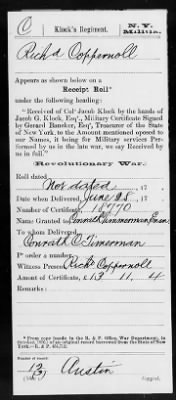 C
Klock's Regiment.
N. Y.
Militia.
Richd Coppernoll
Appears as shown below on a
Receipt Roll*
under the following heading:
"Received of Colo Jacob Klock by the hands of
Jacob G. Klock, Esqr., Military Certificate Signed
by Gerard Bancker, Esqr., Treasurer of the State
of New York, to the Amount mentioned oposed to
our Names, it being for Military services Per-
formed by us in the late war, we say Received by
us in full."
Revolutionary War.
Roll dated
Not dated, 17
Date when Delivered, June 28, 17
Number of Certificate, 18770
Name: Granted to
To whom Delivered
Conrath C Timerman
Pr order a number,
Witness Present, Richd Coppernoll
Amount of Certificate, £ 13. 11. 4
Remarks:
Number of record:
13
Austin
Copyist.